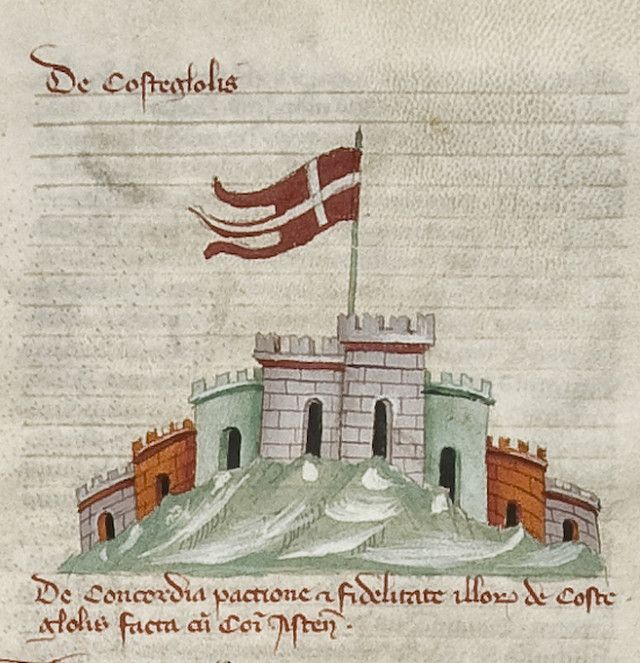 De Costeglolis
De Concordia pactione ⁊ fidelitate illoꝝ de Coste
glolis facta cū Coi̅ Asten̅ .